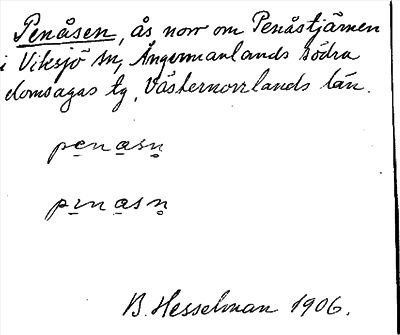 Penåsen, ås norr om Penåstjärnen
i Viksjö sn, Ångermanlands södra
domsagas tg, Västernorrlands län.
pe̱na̱sn̥
pɪ̱na̱sn̥
B. Hesselman 1906.